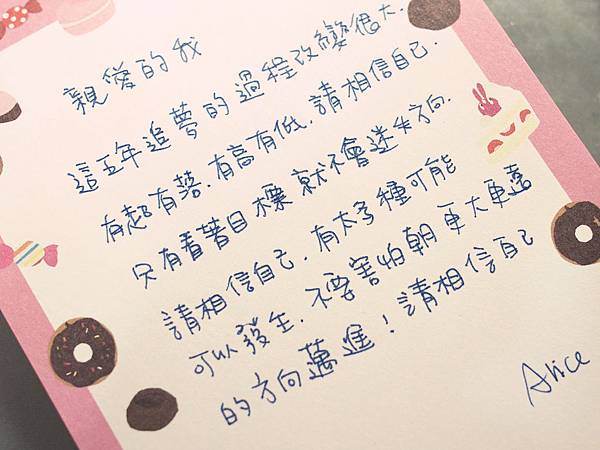 親愛的我
這五年追夢的過程改變很大.
有起有落.有高有低.請相信自己.
只有看著目標 就不會迷失方向.
請相信自己.有太多種可能
可以發生.不要害怕朝更大更遠
的方向邁進!請相信自己
Alice